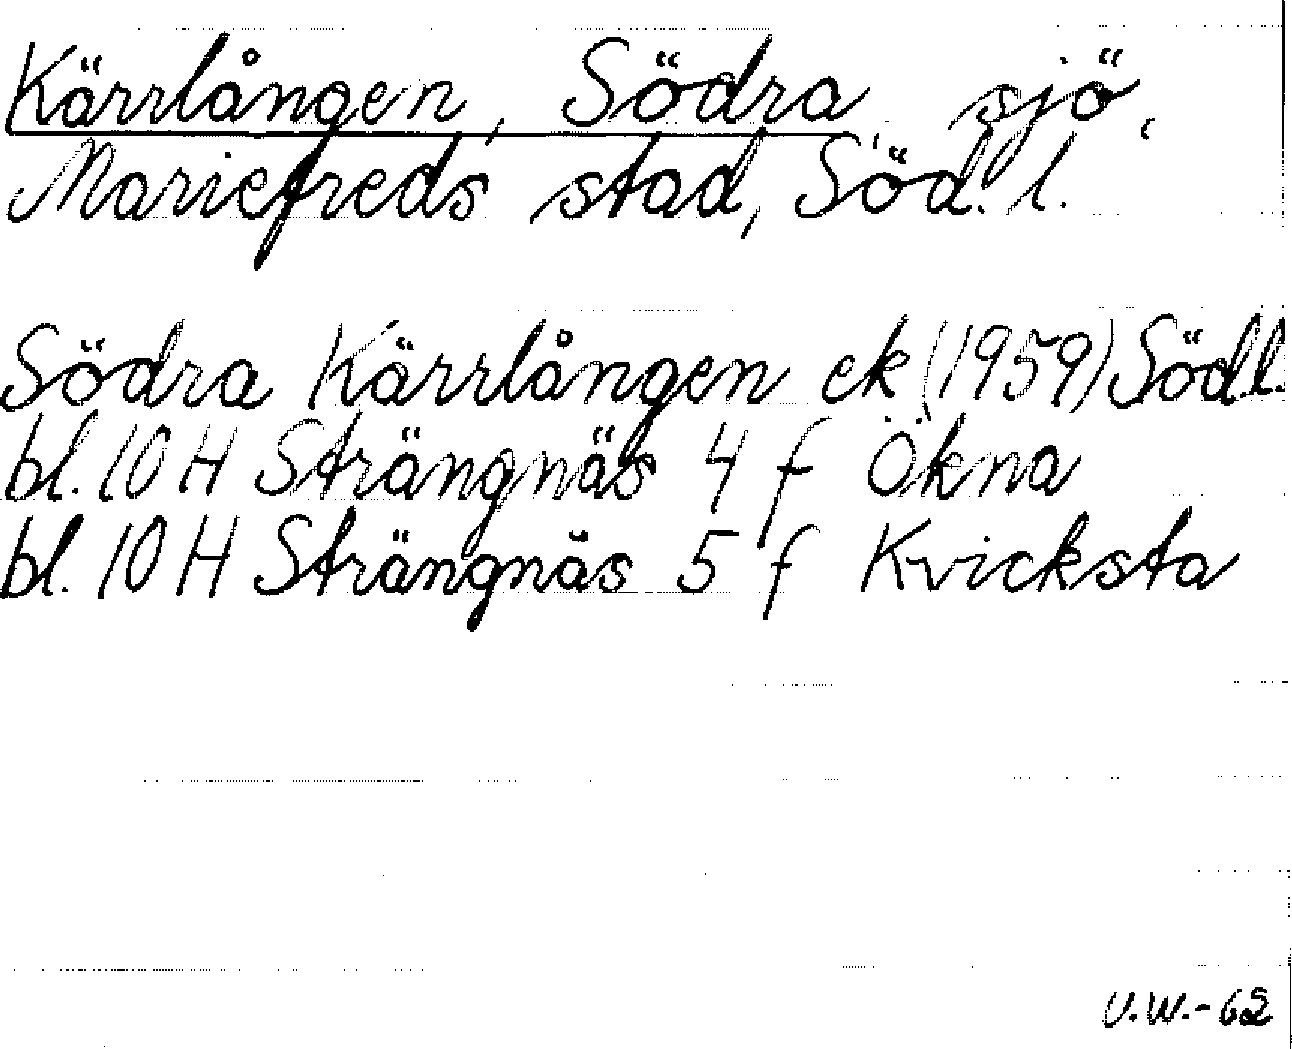 Kärrlången, Södra sjö,
Mariefreds stad, Söd. l.
Södra Kärrlången ek (1959) Södl.
bl. 10 H Strängnäs 4 f Ökna
bl. 10 H Strängnäs 5 f Kvicksta
U.W.-62